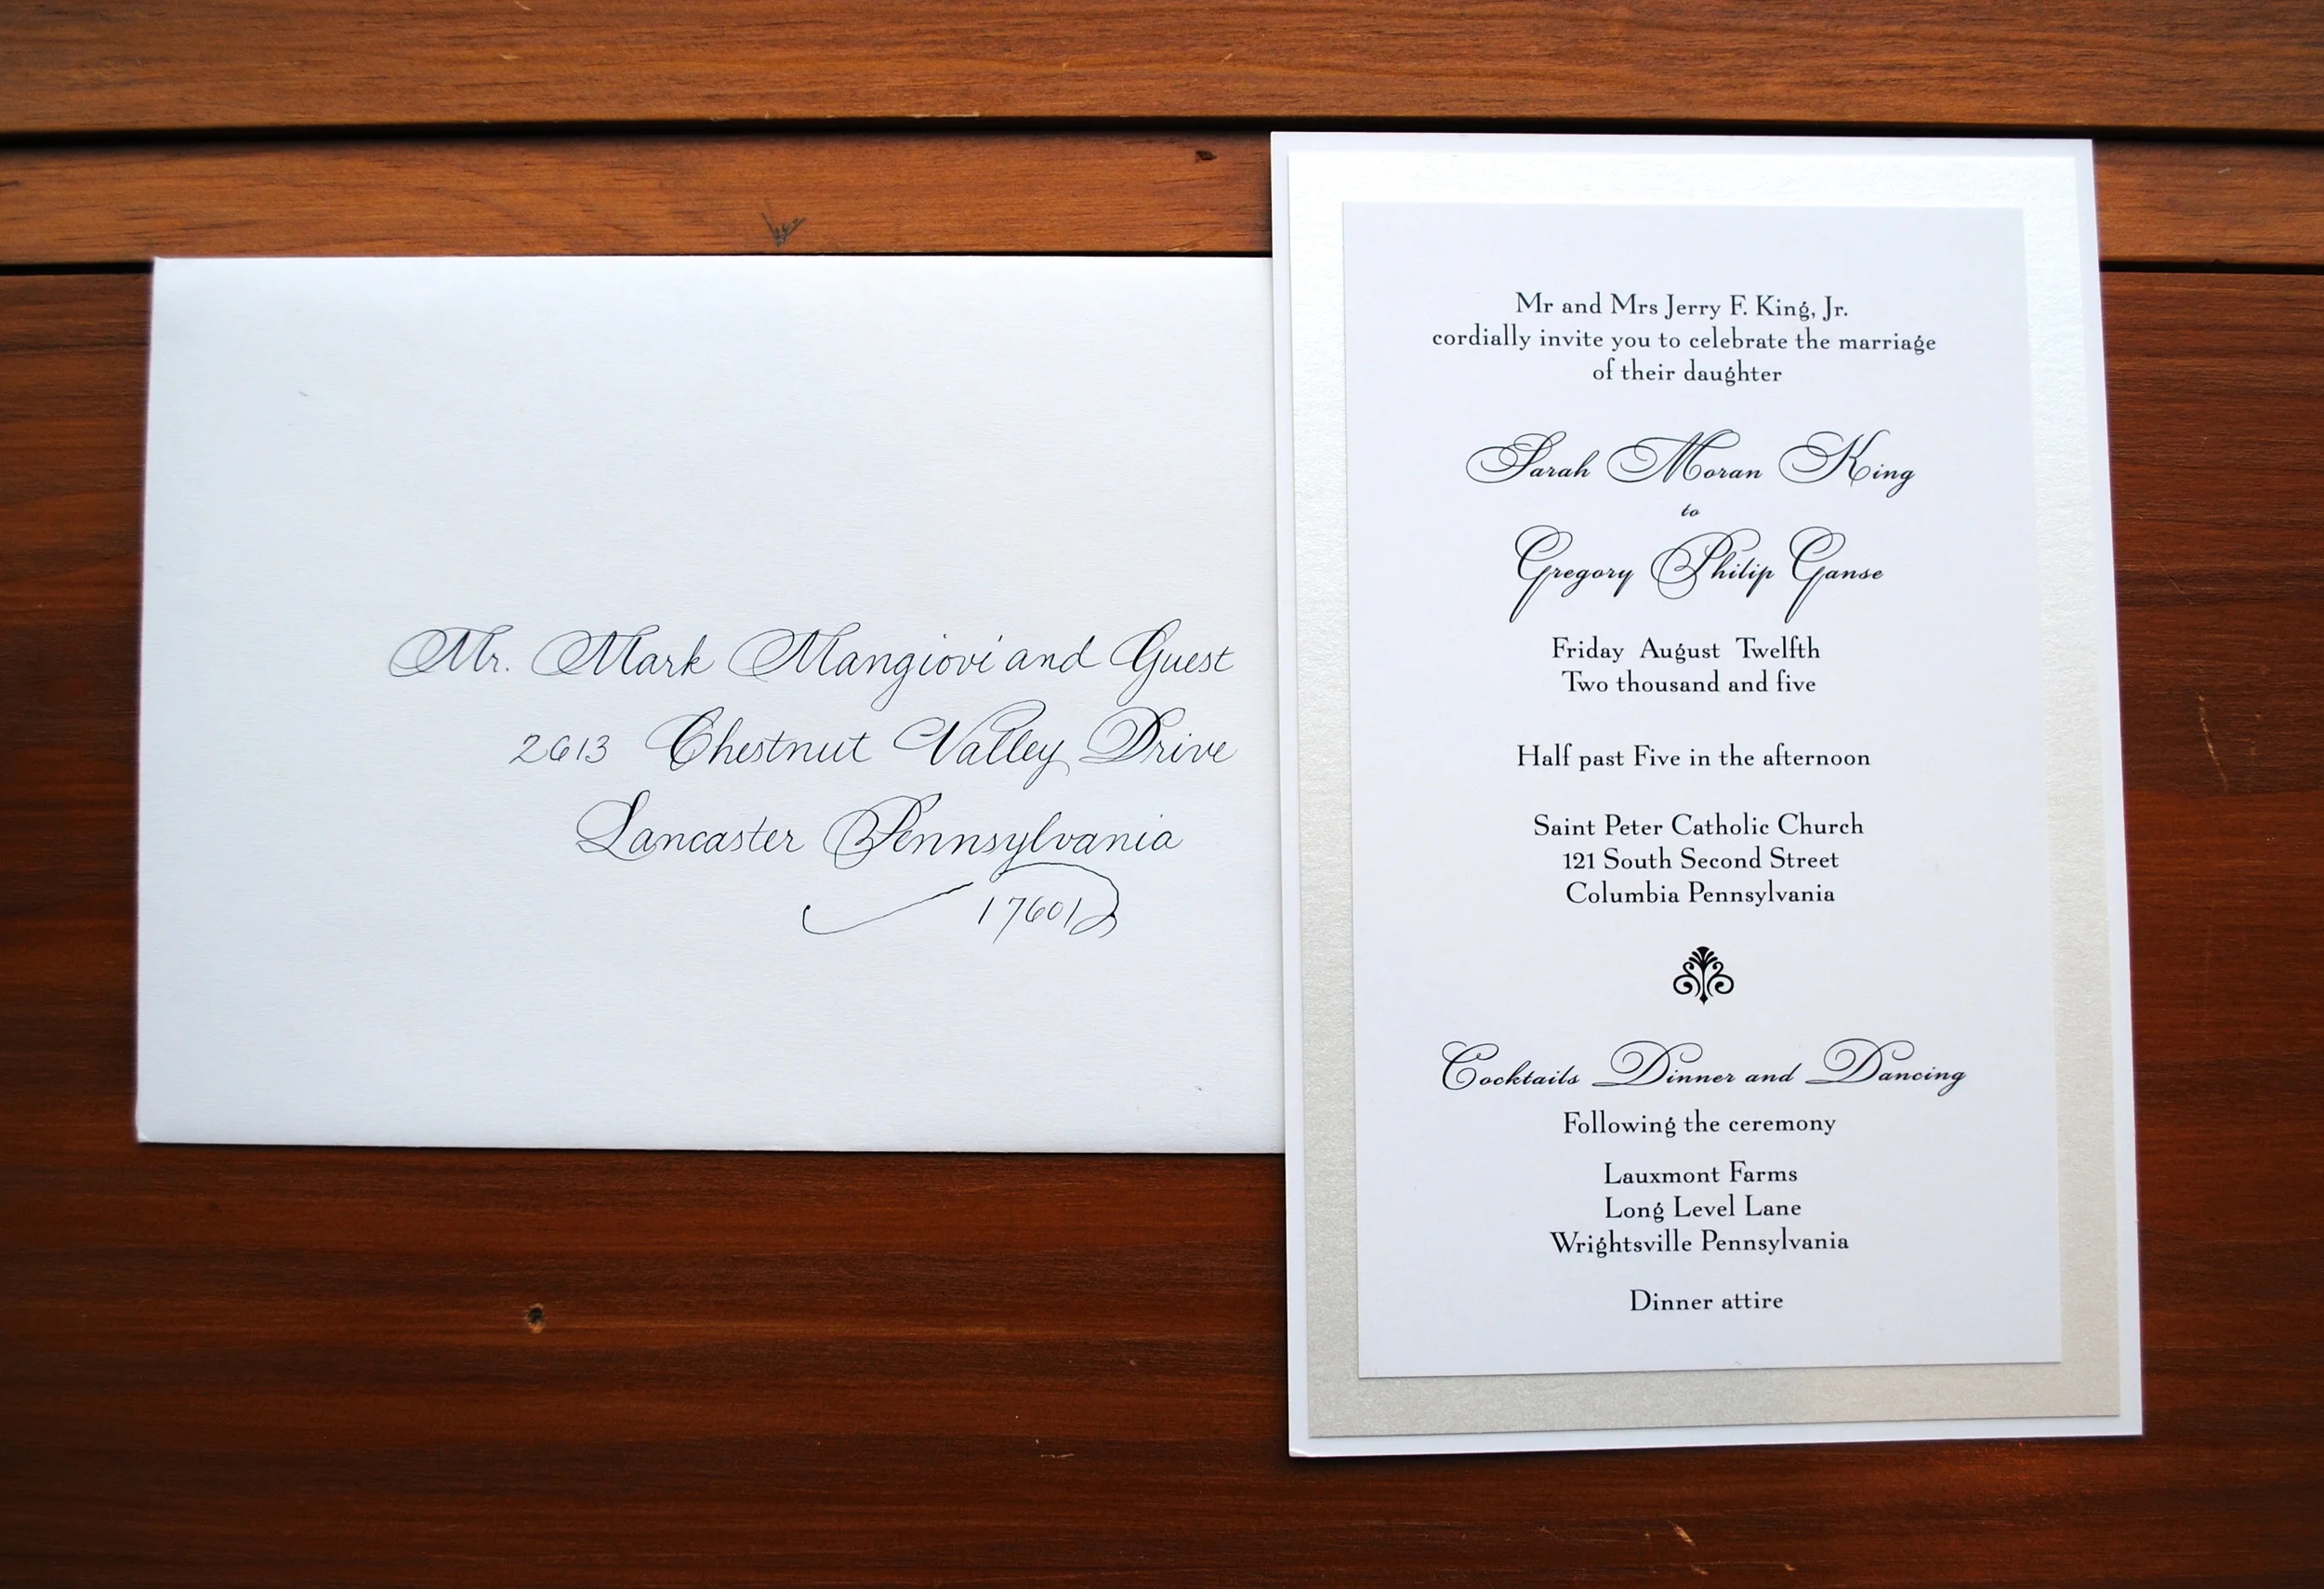 Mr. Mark Mangiovi and Guest
2613 Chestnut Valley Drive
Lancaster Pennsylvania
17601
Mr and Mrs Jerry F. King, Jr.
cordially invite you to celebrate the marriage
of their daughter
Sarah Moran King
to
Gregory Philip Ganse
Friday August Twelfth
Two thousand and five
Half past Five in the afternoon
Saint Peter Catholic Church
121 South Second Street
Columbia Pennsylvania
Cocktails Dinner and Dancing
Following the ceremony
Lauxmont Farms
Long Level Lane
Wrightsville Pennsylvania
Dinner attire